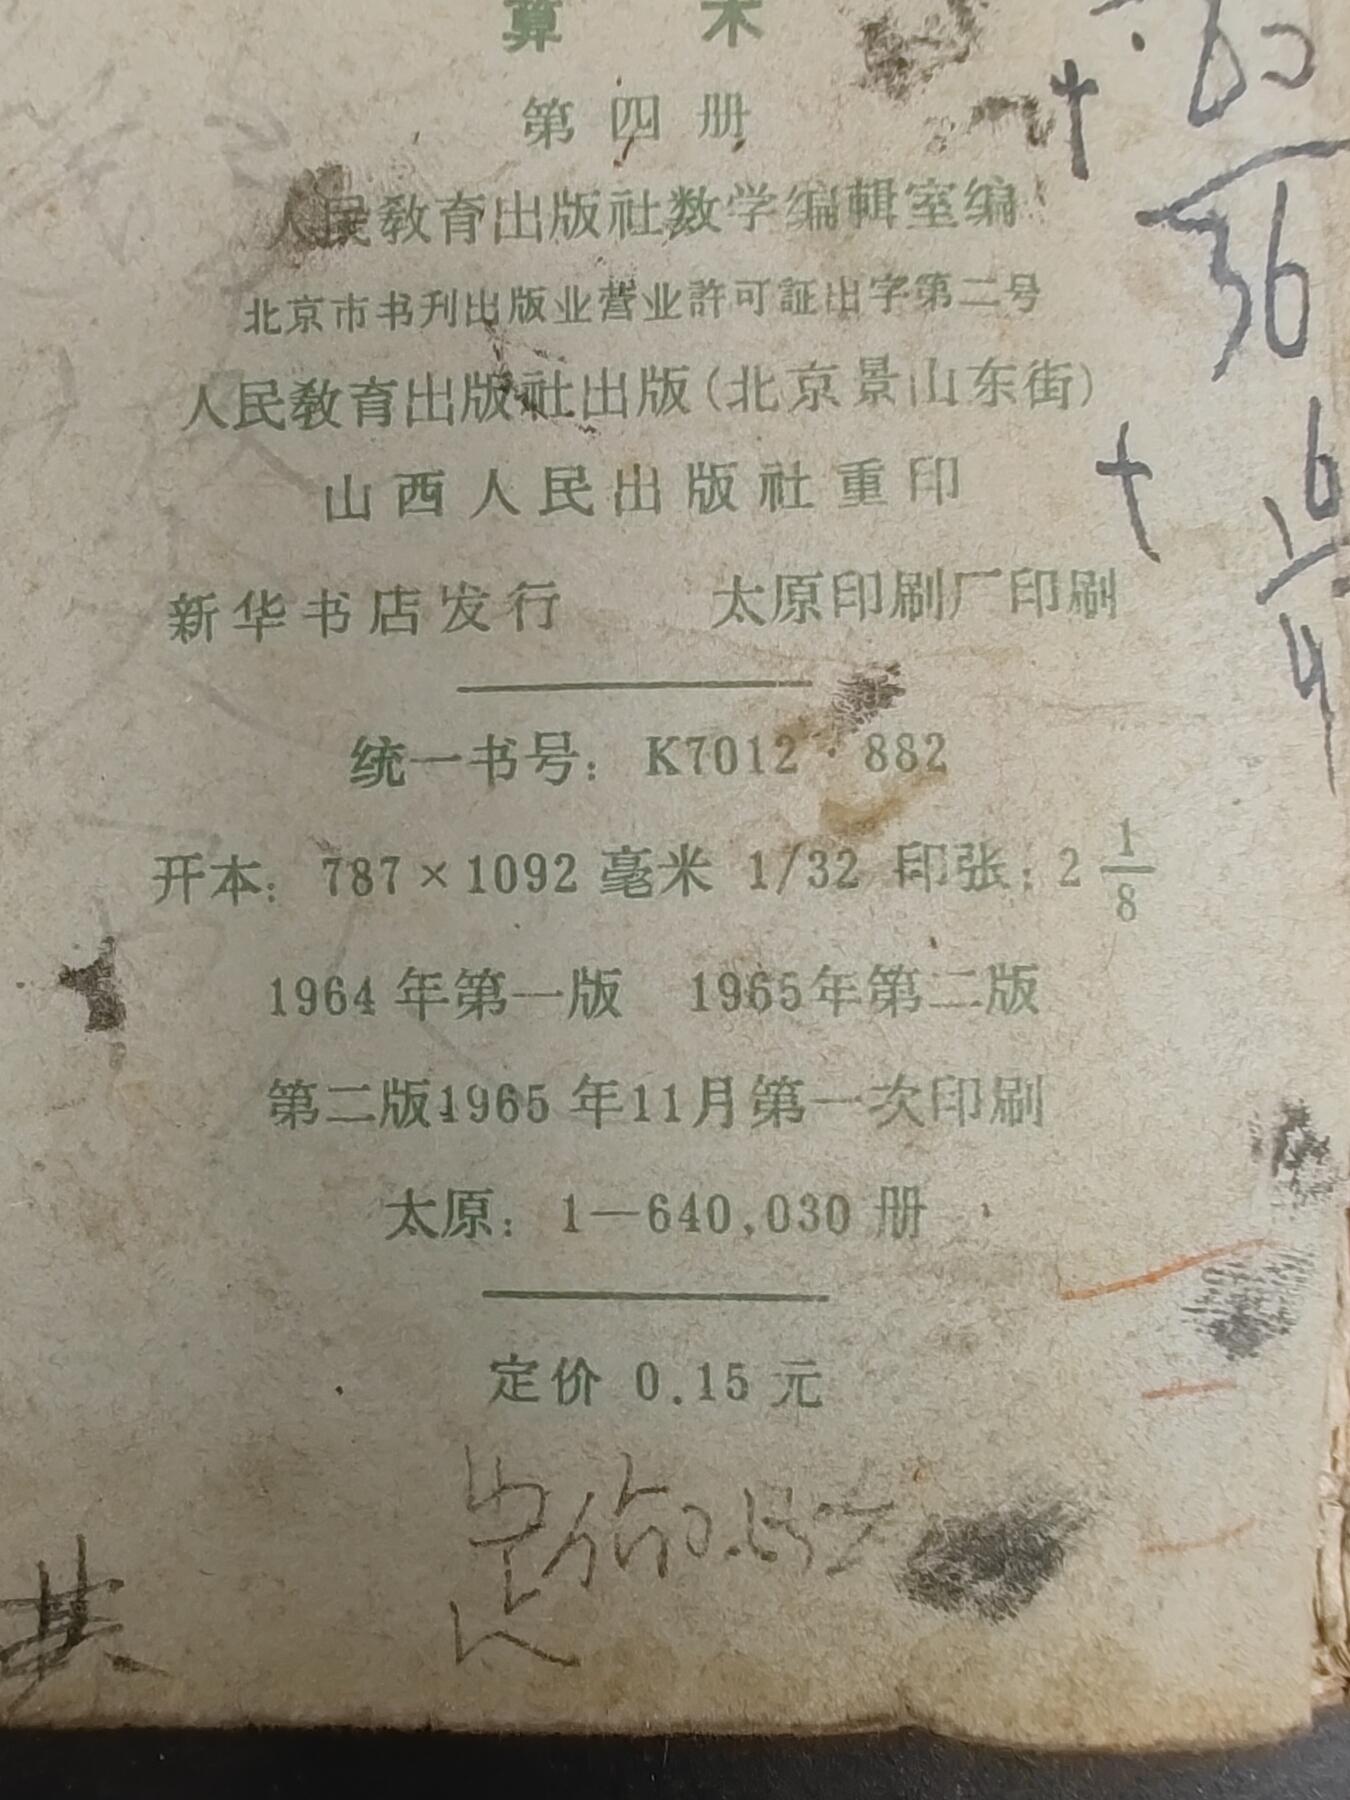 算 术
第四册
人民教育出版社数学编輯室编
北京市书刊出版业营业許可証出字第二号
人民教育出版社出版(北京景山东街)
山西人民出版社重印
新华书店发行 太原印刷厂印刷
统一书号：K7012·882
开本：787×1092 毫米 1/32 印张：2 1/8
1964年第一版 1965年第二版
第二版1965年11月第一次印刷
太原：1—640,030 册
定价 0.15 元
共
36
6
4